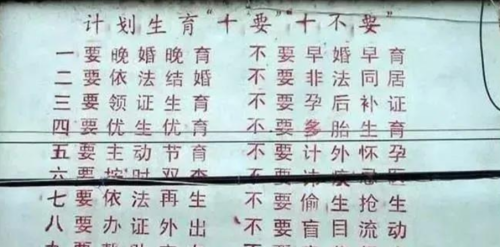 计划生育“十要”“十不要”
一要晚婚晚育 不要早婚早育
二要依法结婚 不要非法同居
三要领证生育 不要孕后补证
四要优生优育 不要多胎生育
五要主动节育 不要计外怀孕
六要按时双查 不要讳疾忌医
七要依法再生 不要偷生抢生
八要办证外出 不要盲目流动